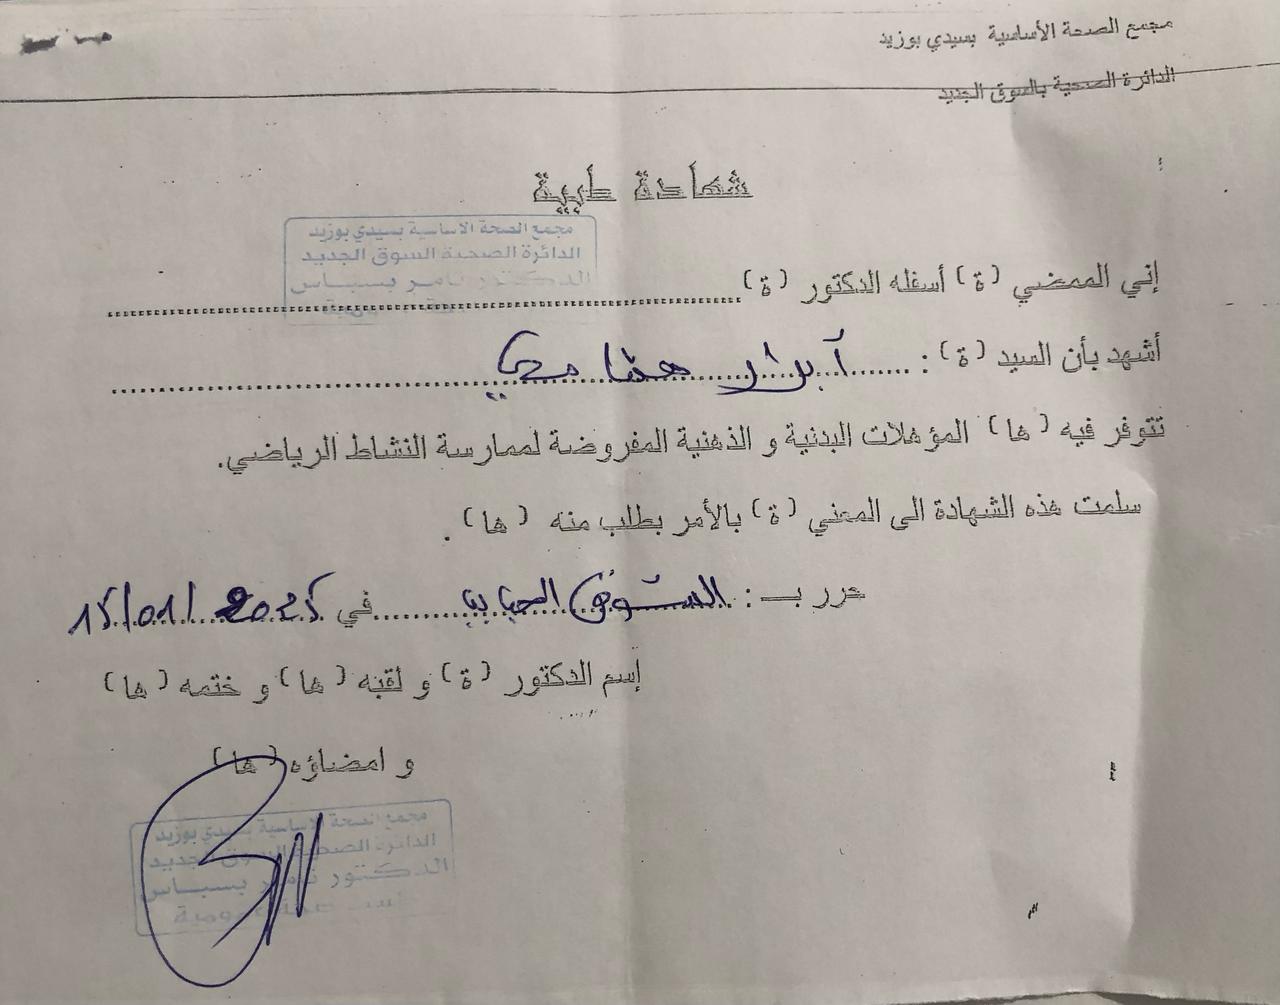 مجمع الصحة الأساسية بسيدي بوزيد
الدائرة الصحية بالسوق الجديد
شهادة طبية
مجمع الصحة الاساسية بسيدي بوزيد
الدائرة الصحية السوق الجديد
الدكتور ثامر بسباس
إني الممضي (ة) أسفله الدكتور (ة)
أشهد بأن السيد (ة) :
تتوفر فيه (ها) المؤهلات البدنية و الذهنية المفروضة لممارسة النشاط الرياضي.
سلمت هذه الشهادة الى المعني (ة) بالأمر بطلب منه (ها) .
حرر بـ : السوق الجديد في 15/01/2025
إسم الدكتور (ة) و لقبه (ها) و ختمه (ها)
و امضاؤه (ها)
مجمع الصحة الاساسية بسيدي بوزيد
الدائرة الصحية السوق الجديد
الدكتور ثامر بسباس